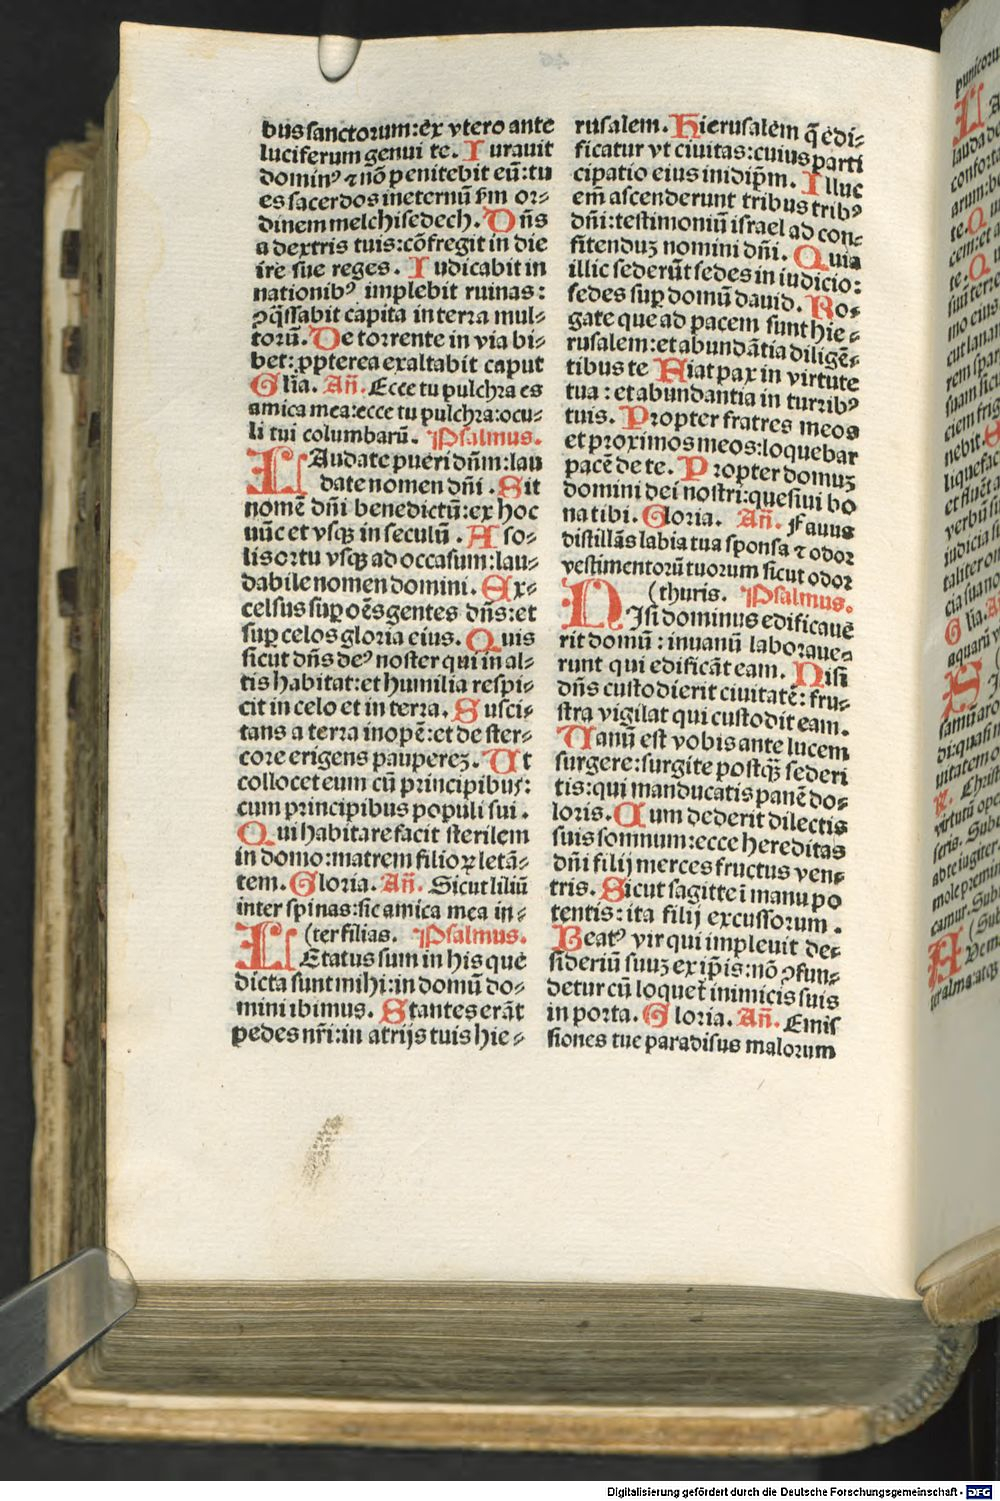 bus sanctorum: ex vtero ante
luciferum genui te. Iurauit
dominꝰ ⁊ nõ penitebit eũ: tu
es sacerdos ineternũ ẜm or⸗
dinem melchisedech. Dñs
a dextris tuis: cõfregit in die
ire sue reges. Iudicabit in
nationibꝰ implebit ruinas:
ꝯq̃ssabit capita in terra mul⸗
torũ. De torrente in via bi⸗
bet: ꝓpterea exaltabit caput
Gl̃ia. Añ. Ecce tu pulchra es
amica mea: ecce tu pulchra: ocu⸗
li tui columbarũ. Psalmus.
LAudate pueri dñm: lau
date nomen dñi. Sit
nomẽ dñi benedictũ: ex hoc
nũc et vsqꝫ in seculũ. A so⸗
lis ortu vsqꝫ ad occasum: lau⸗
dabile nomen domini. Ex⸗
celsus suꝑ oẽs gentes dñs: et
suꝑ celos gloria eius. Quis
sicut dñs deꝰ noster qui in al⸗
tis habitat: et humilia respi⸗
cit in celo et in terra. Susci⸗
tans a terra inopẽ: et de ster⸗
core erigens paupereꝫ. Ut
collocet eum cũ principibus:
cum principibus populi sui.
Qui habitare facit sterilem
in domo: matrem filioꝝ letã⸗
tem. Gloria. Añ. Sicut liliũ
inter spinas: sic amica mea in⸗
(ter filias. Psalmus.
LEtatus sum in his que
dicta sunt mihi: in domũ do⸗
mini ibimus. Stantes erãt
pedes nr̃i: in atrijs tuis hie⸗
rusalem. Hierusalem q̃ edi⸗
ficatur vt ciuitas: cuius parti
cipatio eius inidip̃m. Illuc
em̃ ascenderunt tribus tribꝰ
dñi: testimoniũ israel ad con⸗
fitenduꝫ nomini dñi. Quia
illic sederũt sedes in iudicio:
sedes suꝑ domũ dauid. Ro⸗
gate que ad pacem sunt hie⸗
rusalem: et abundãtia diligẽ⸗
tibus te Fiat pax in virtute
tua: et abundantia in turribꝰ
tuis. Propter fratres meos
et proximos meos: loquebar
pacẽ de te. Propter domuꝫ
domini dei nostri: quesiui bo
na tibi. Gloria. Añ. Fauus
distillãs labia tua sponsa ⁊ odor
vestimentorũ tuorum sicut odor
(thuris. Psalmus.
NIsi dominus edificauẽ
rit domũ: in vanũ laboraue⸗
runt qui edificãt eam. Nisi
dñs custodierit ciuitatẽ: fru⸗
stra vigilat qui custodit eam.
Uanũ est vobis ante lucem
surgere: surgite postqꝫ̃ sederi
tis: qui manducatis panẽ do⸗
loris. Cum dederit dilectis
suis somnum: ecce hereditas
dñi filij merces fructus ven⸗
tris. Sicut sagitte ĩ manu po
tentis: ita filij excussorum.
Beatꝰ vir qui impleuit de⸗
sideriũ suuꝫ ex ip̃is: nõ ꝯfun⸗
detur cũ loquet᷑ inimicis suis
in porta. Gloria. Añ. Emis
siones tue paradisus malorum
Digitalisierung gefördert durch die Deutsche Forschungsgemeinschaft - DFG